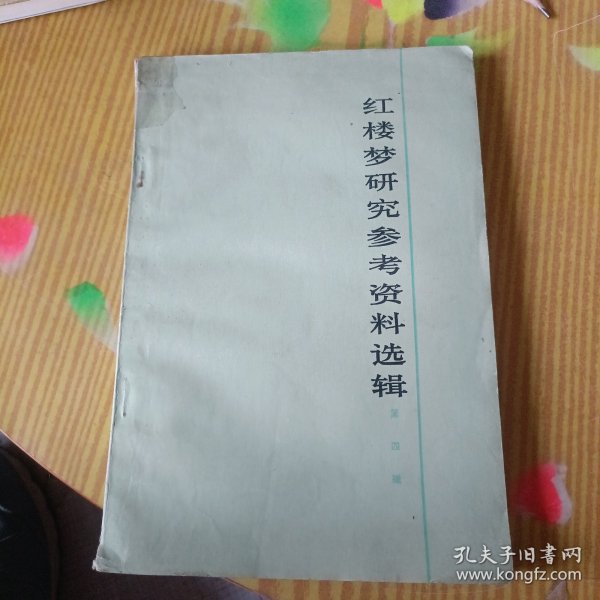 红楼梦研究参考资料选辑
第四辑
孔夫子旧书网
www.kongfz.com